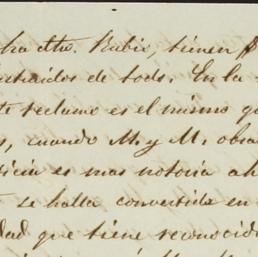 ha dho. Rubio, tienen
de todo. En la
te reclamo es el mismo qu
s, cuando M. y M. obra
ticia es mas notoria ah
se halla convertida en
dad que tiene reconocid